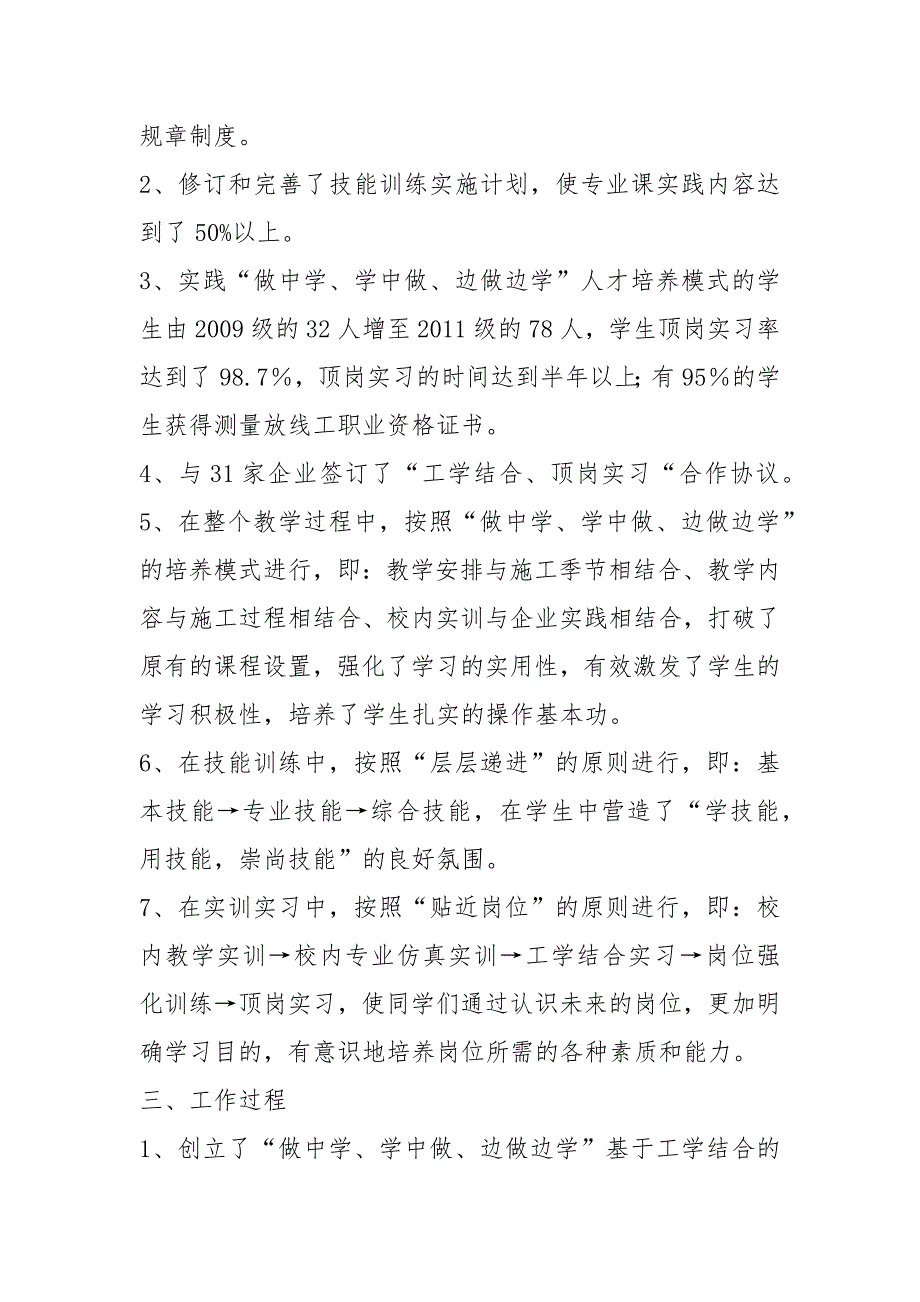 规章制度。
2、修订和完善了技能训练实施计划，使专业课实践内容达
到了 50%以上。
3、实践“做中学、学中做、边做边学”人才培养模式的学
生由 2009 级的 32 人增至 2011 级的 78 人，学生顶岗实习率
达到了 98.7％，顶岗实习的时间达到半年以上；有 95％的学
生获得测量放线工职业资格证书。
4、与 31 家企业签订了“工学结合、顶岗实习“合作协议。
5、在整个教学过程中，按照“做中学、学中做、边做边学”
的培养模式进行，即：教学安排与施工季节相结合、教学内
容与施工过程相结合、校内实训与企业实践相结合，打破了
原有的课程设置，强化了学习的实用性，有效激发了学生的
学习积极性，培养了学生扎实的操作基本功。
6、在技能训练中，按照“层层递进”的原则进行，即：基
本技能→专业技能→综合技能，在学生中营造了“学技能，
用技能，崇尚技能”的良好氛围。
7、在实训实习中，按照“贴近岗位”的原则进行，即：校
内教学实训→校内专业仿真实训→工学结合实习→岗位强
化训练→顶岗实习，使同学们通过认识未来的岗位，更加明
确学习目的，有意识地培养岗位所需的各种素质和能力。
三、工作过程
1、创立了“做中学、学中做、边做边学”基于工学结合的